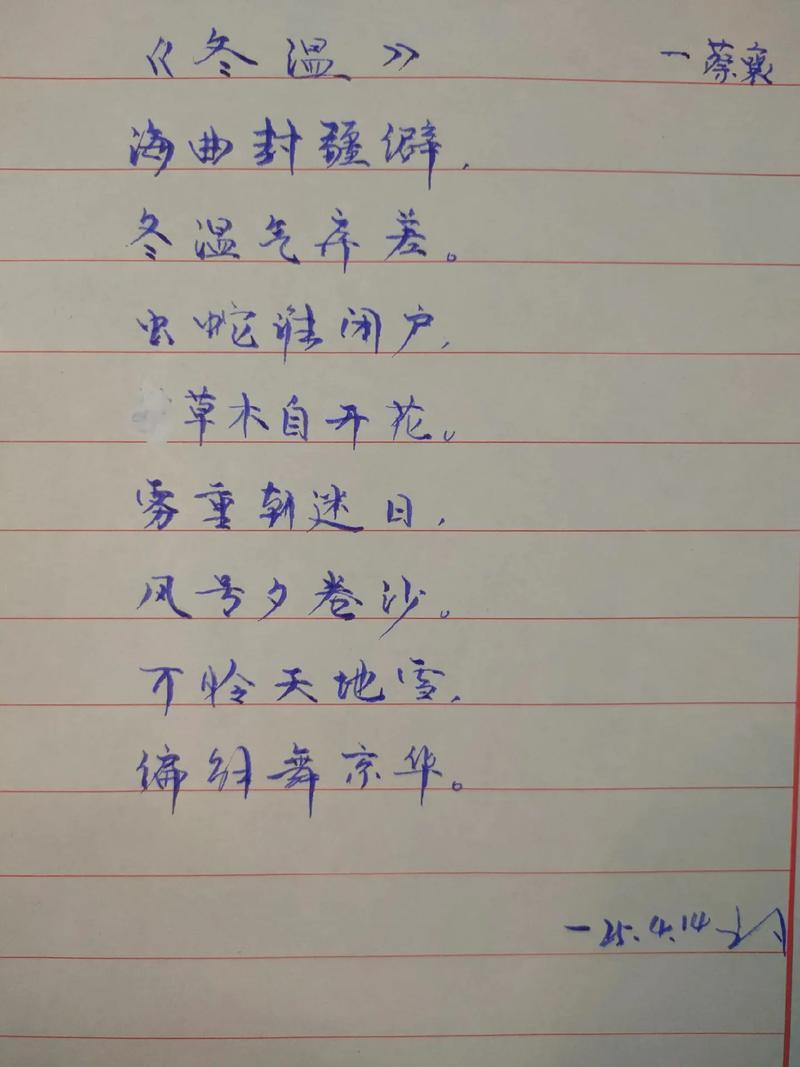 《冬温》 一蔡襄
海曲封疆僻,
冬温气序差。
虫蛇谁闭户,
草木自开花。
雾重朝迷日,
风号夕卷沙。
可怜天地雪,
偏舞京华。
一25.4.14